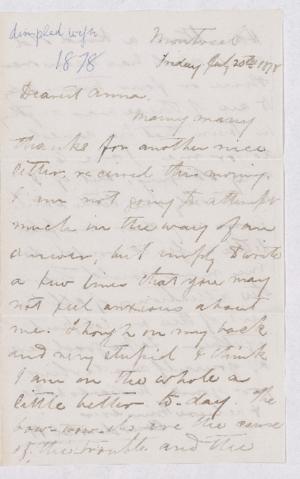 dimpled wife
1878
Montreal
Friday July 20th 1878
Dearest Anna,
Many many
thanks for another nice
letter, received this morning.
I am not going to attempt
much in the way of an
answer, but simply to write
a few lines that you may
not feel anxious about
me. Though on my back
and very stupid I think
I am on the whole a
little better to-day. The
are the cause
of the trouble and the